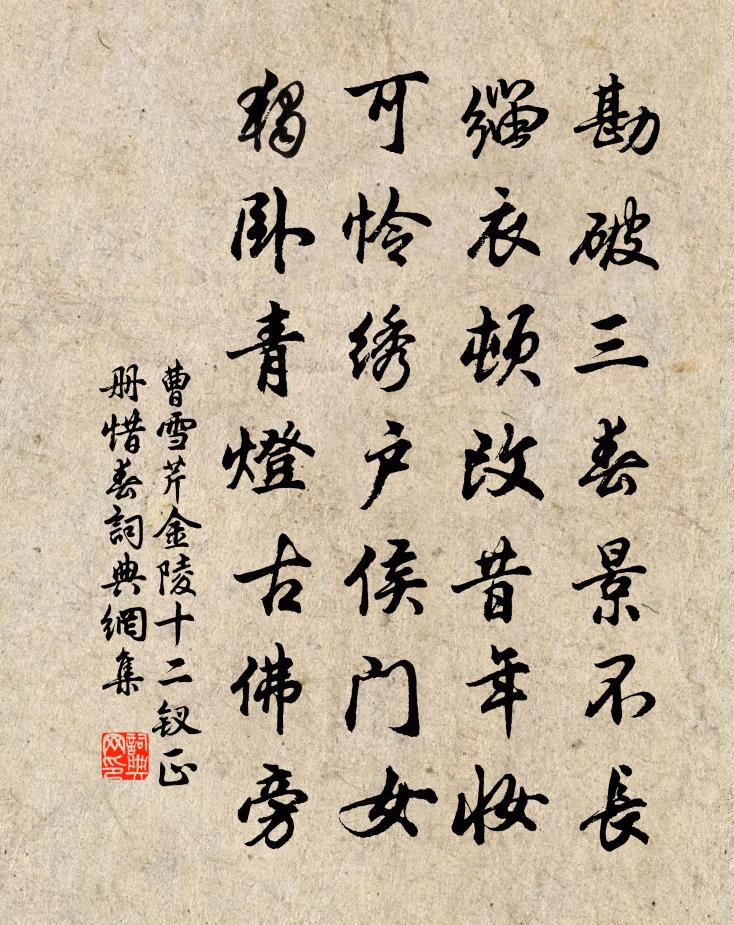 勘破三春景不長
缁衣顿改昔年妆
可怜绣户侯门女
独卧青燈古佛旁
曹雪芹金陵十二钗正
册惜春詞典網集
詞典
网印